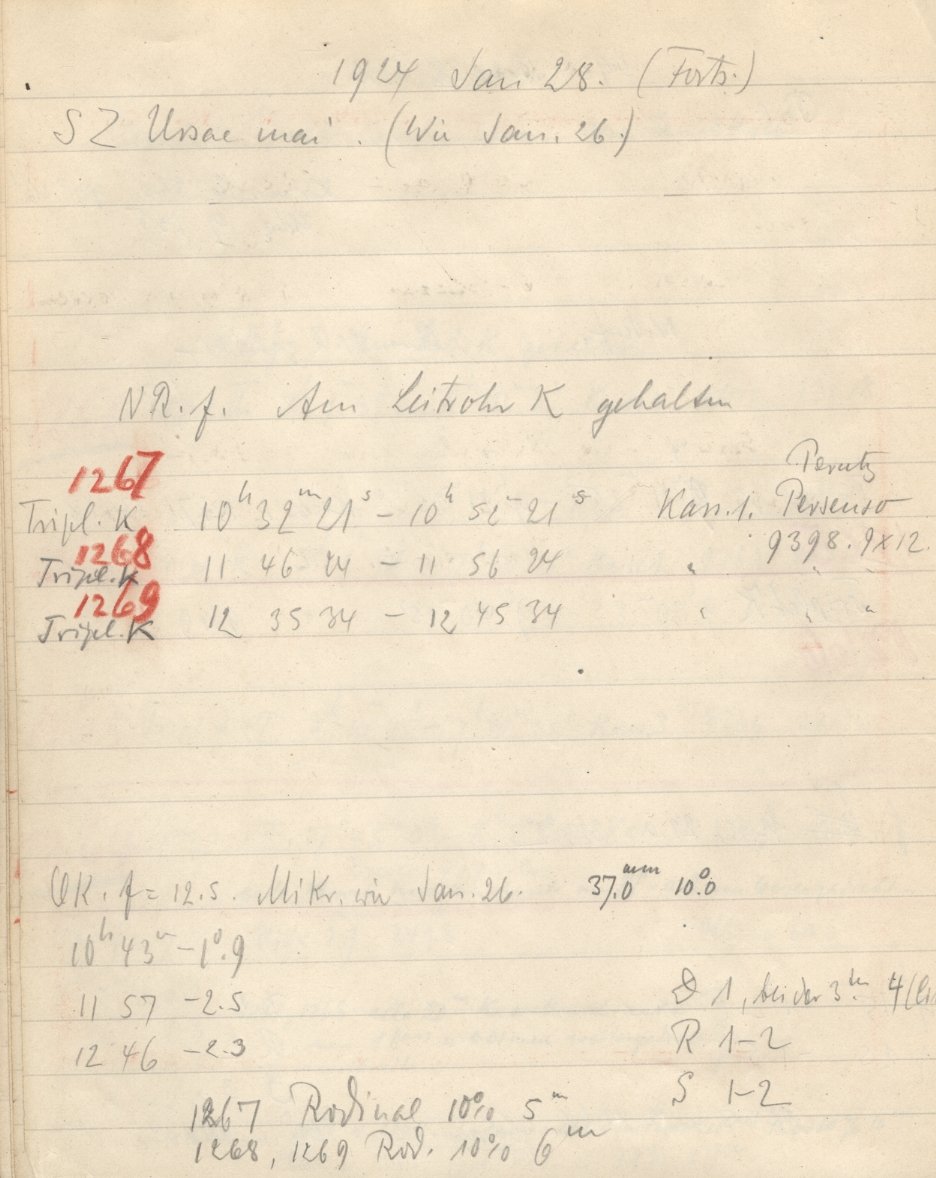 1924 Jan 28. (Forts.)
SZ Ursae mai. (Wie Jan. 26.)
NR. f. Am Leitrohr K gehalten
1267
Perutz
Tripl. K 10h 32m 21s – 10h 52m 21s Kass. 1. Persenso
1268
9398. 9x12.
Tripl. K 11 46 24 – 11 56 24 " " "
1269
Tripl. K 12 35 34 – 12 45 34 " " "
OK. f = 12.5. Mikr. wie Jan. 26. 37.0mm 10°.0
10h 43m –1°.9
11 57 –2.5
D 1, bei der 3ten 4
12 46 –2.3
R 1–2
S 1–2
1267 Rodinal 10% 5m
1268, 1269 Rod. 10% 6m